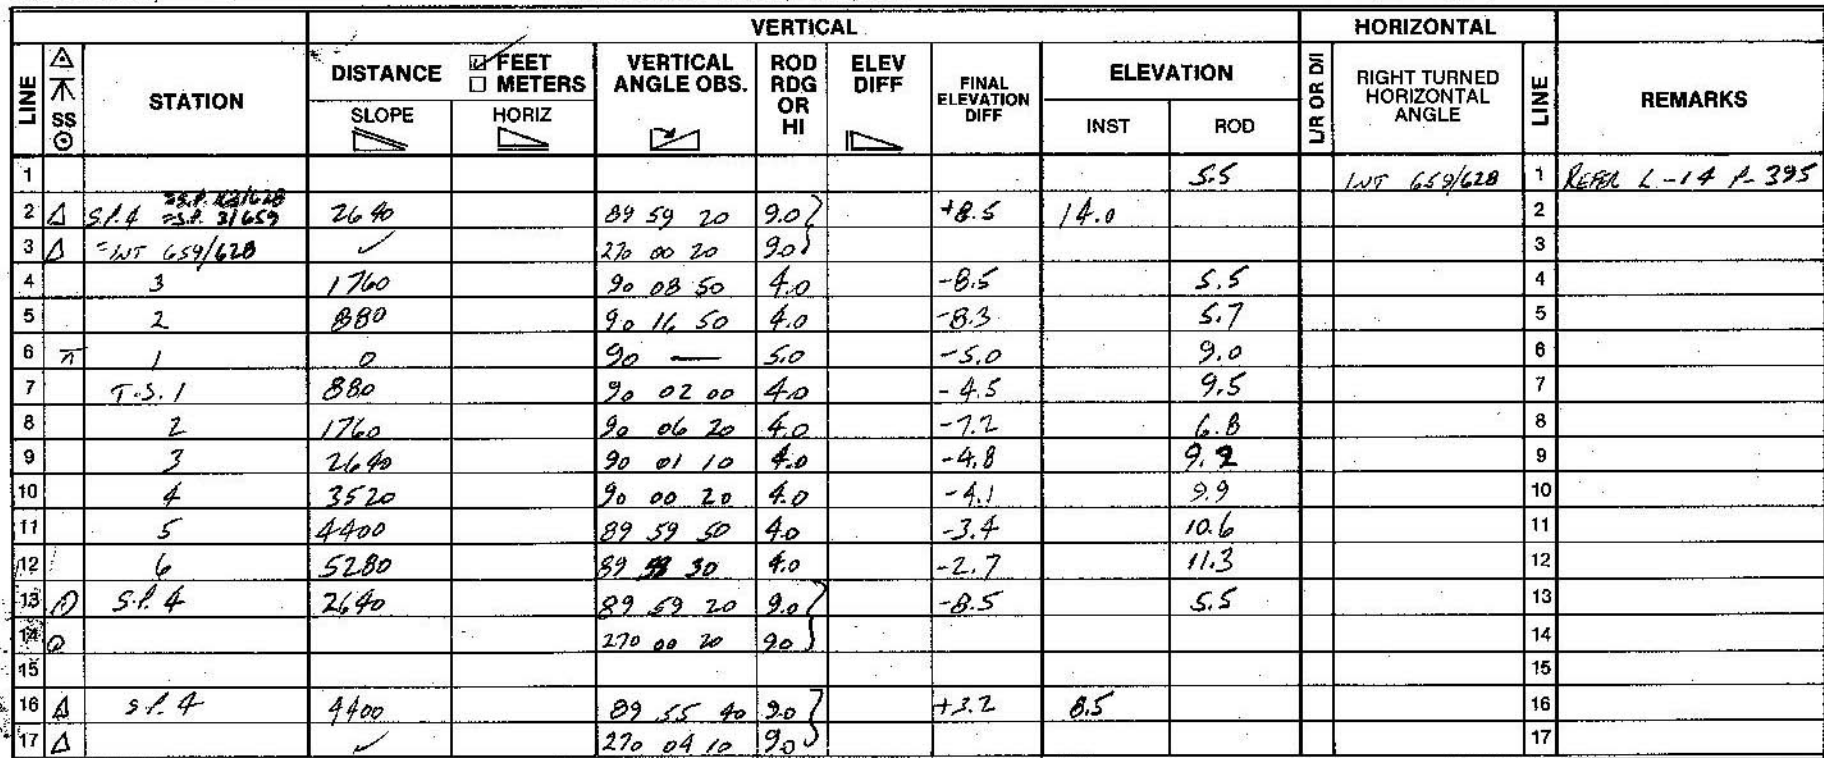 VERTICAL HORIZONTAL
LINE SS STATION DISTANCE FEET METERS VERTICAL ANGLE OBS. ROD RDG OR HI ELEV DIFF FINAL ELEVATION DIFF ELEVATION L/R OR D/I RIGHT TURNED HORIZONTAL ANGLE LINE REMARKS
SLOPE HORIZ INST ROD
1 5.5 INT 659/628 1 REFER L-14 P-395
=S.P. 3/659
2 Δ S.P. 4 2640 89 59 20 9.0 +8.5 14.0 2
3 Δ =INT 659/628 ✓ 270 00 20 9.0 3
4 3 1760 90 08 50 4.0 -8.5 5.5 4
5 2 880 90 16 50 4.0 -8.3 5.7 5
6 1 0 90 — 5.0 -5.0 9.0 6
7 T.S. 1 880 90 02 00 4.0 -4.5 9.5 7
8 2 1760 90 06 20 4.0 -7.2 6.8 8
9 3 2640 90 01 10 4.0 -4.8 9.2 9
10 4 3520 90 00 20 4.0 -4.1 9.9 10
11 5 4400 89 59 50 4.0 -3.4 10.6 11
12 6 5280 89 30 4.0 -2.7 11.3 12
13 S.P. 4 2640 89 59 20 9.0 -8.5 5.5 13
14 270 00 20 9.0 14
15 15
16 Δ S.P. 4 4400 89 55 40 9.0 +3.2 8.5 16
17 Δ ✓ 270 04 10 9.0 17